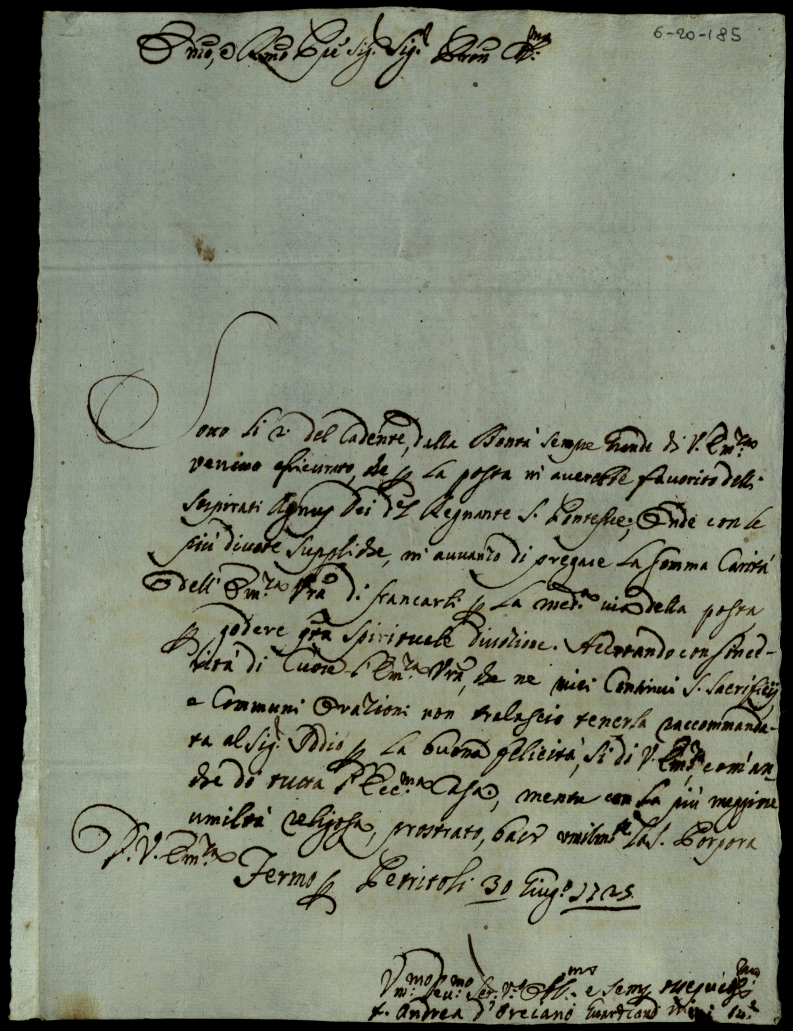 6-20-185
Emo, e Rmo Pne Sig. Sig.r Pron Col.mo
Sotto li 2. del Cadente, dalla Bontà sempre grande di V. Em.za
venivo assicurato, che p la posta m'averebbe favorito delli
sospirati Agnus Dei del Regnante S. Pontefice; Onde con le
più divote suppliche, m'avvanzo di pregare la somma Carità
dell' Em.za Vra di francarli p la med.a via della posta,
p godere qta spirituale divozione. Accertando con sincerità
di Cuore l'Em.za Vra, che ne miei Continui S. Sacrificij,
e Communi Orazioni non tralascio tenerla raccommanda-
ta al Sig. Iddio p la buona felicità, sì di V. Em.za, com'an
che di tutta l'Ecc.ma Casa, mentre con la più maggiore
umiltà religiosa, prostrato, bacio umilm.te la S. Porpora
D. V. Em.za
Fermo p Petritoli 30 Giug.o 1725
Um.mo Dev.mo Ser. V.o Obl.mo e semp ossequiss.mo
f. Andrea d'Orciano Guardiano